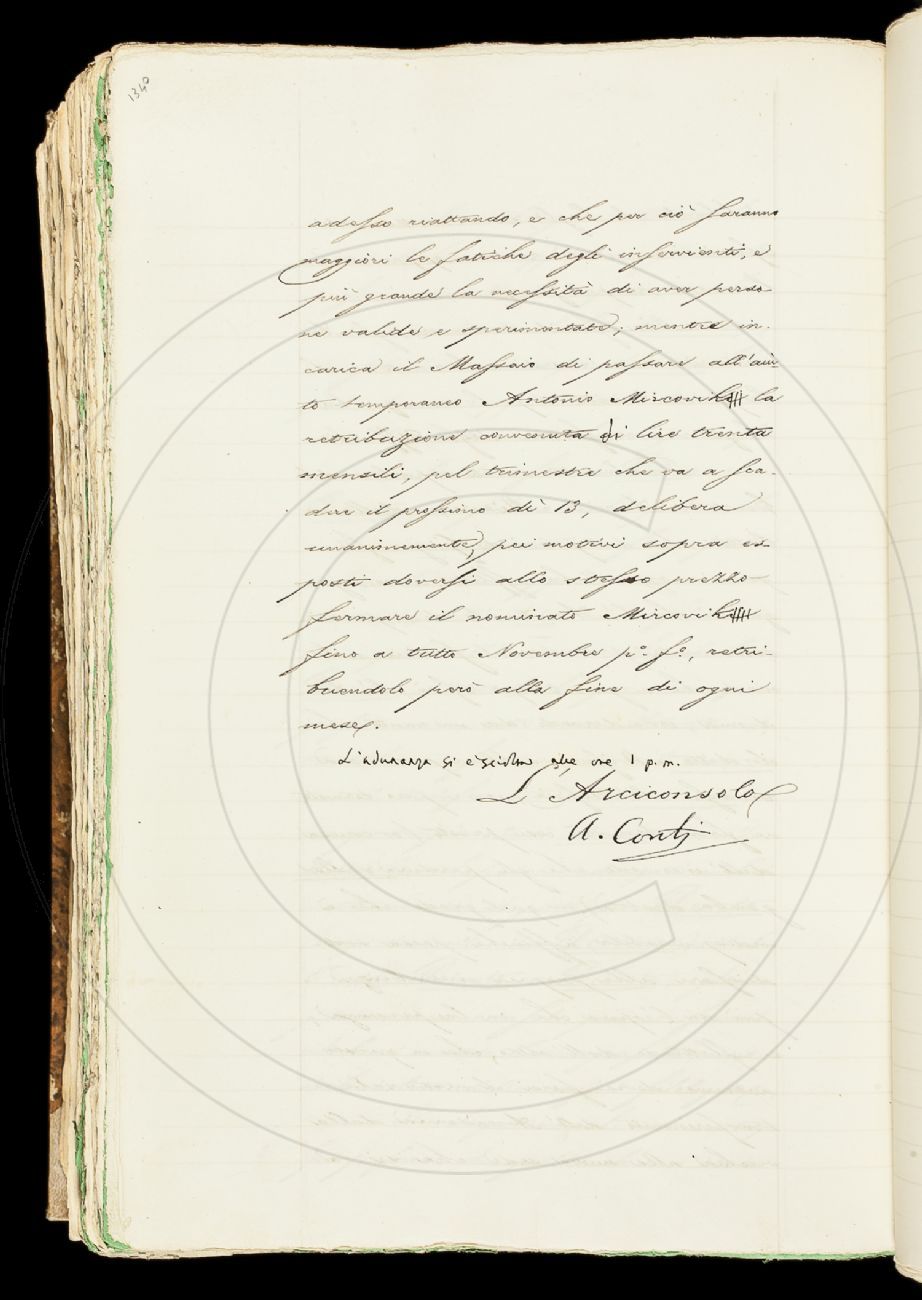 1340
adesso riattando, e che per ciò saranno
maggiori le fatiche degli inservienti, e
più grande la necessità di aver perso-
ne valide e sperimentate; mentre in-
carica il Massaio di passare all'aiu-
to temporaneo Antonio Mircovik la
retribuzione convenuta di lire trenta
mensili, pel trimestre che va a sca-
dere il prossimo dì 13, delibera
unanimemente, pei motivi sopra es-
posti doversi allo stesso prezzo
fermare il nominato Mircovik
fino a tutto Novembre p.o f.o, retri-
buendolo però alla fine di ogni
mese.
L'adunanza si è sciolta alle ore 1 p. m.
L'Arciconsolo
A. Conti